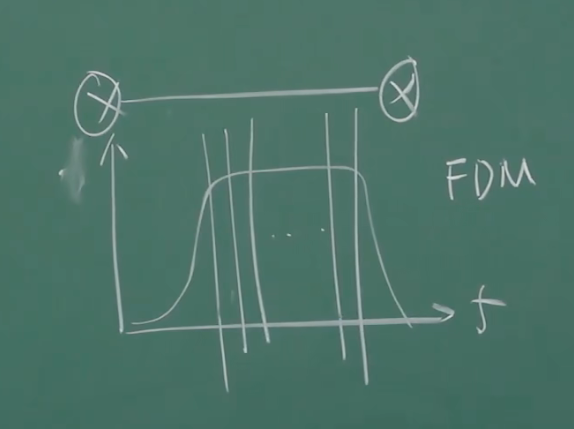 FDM
f